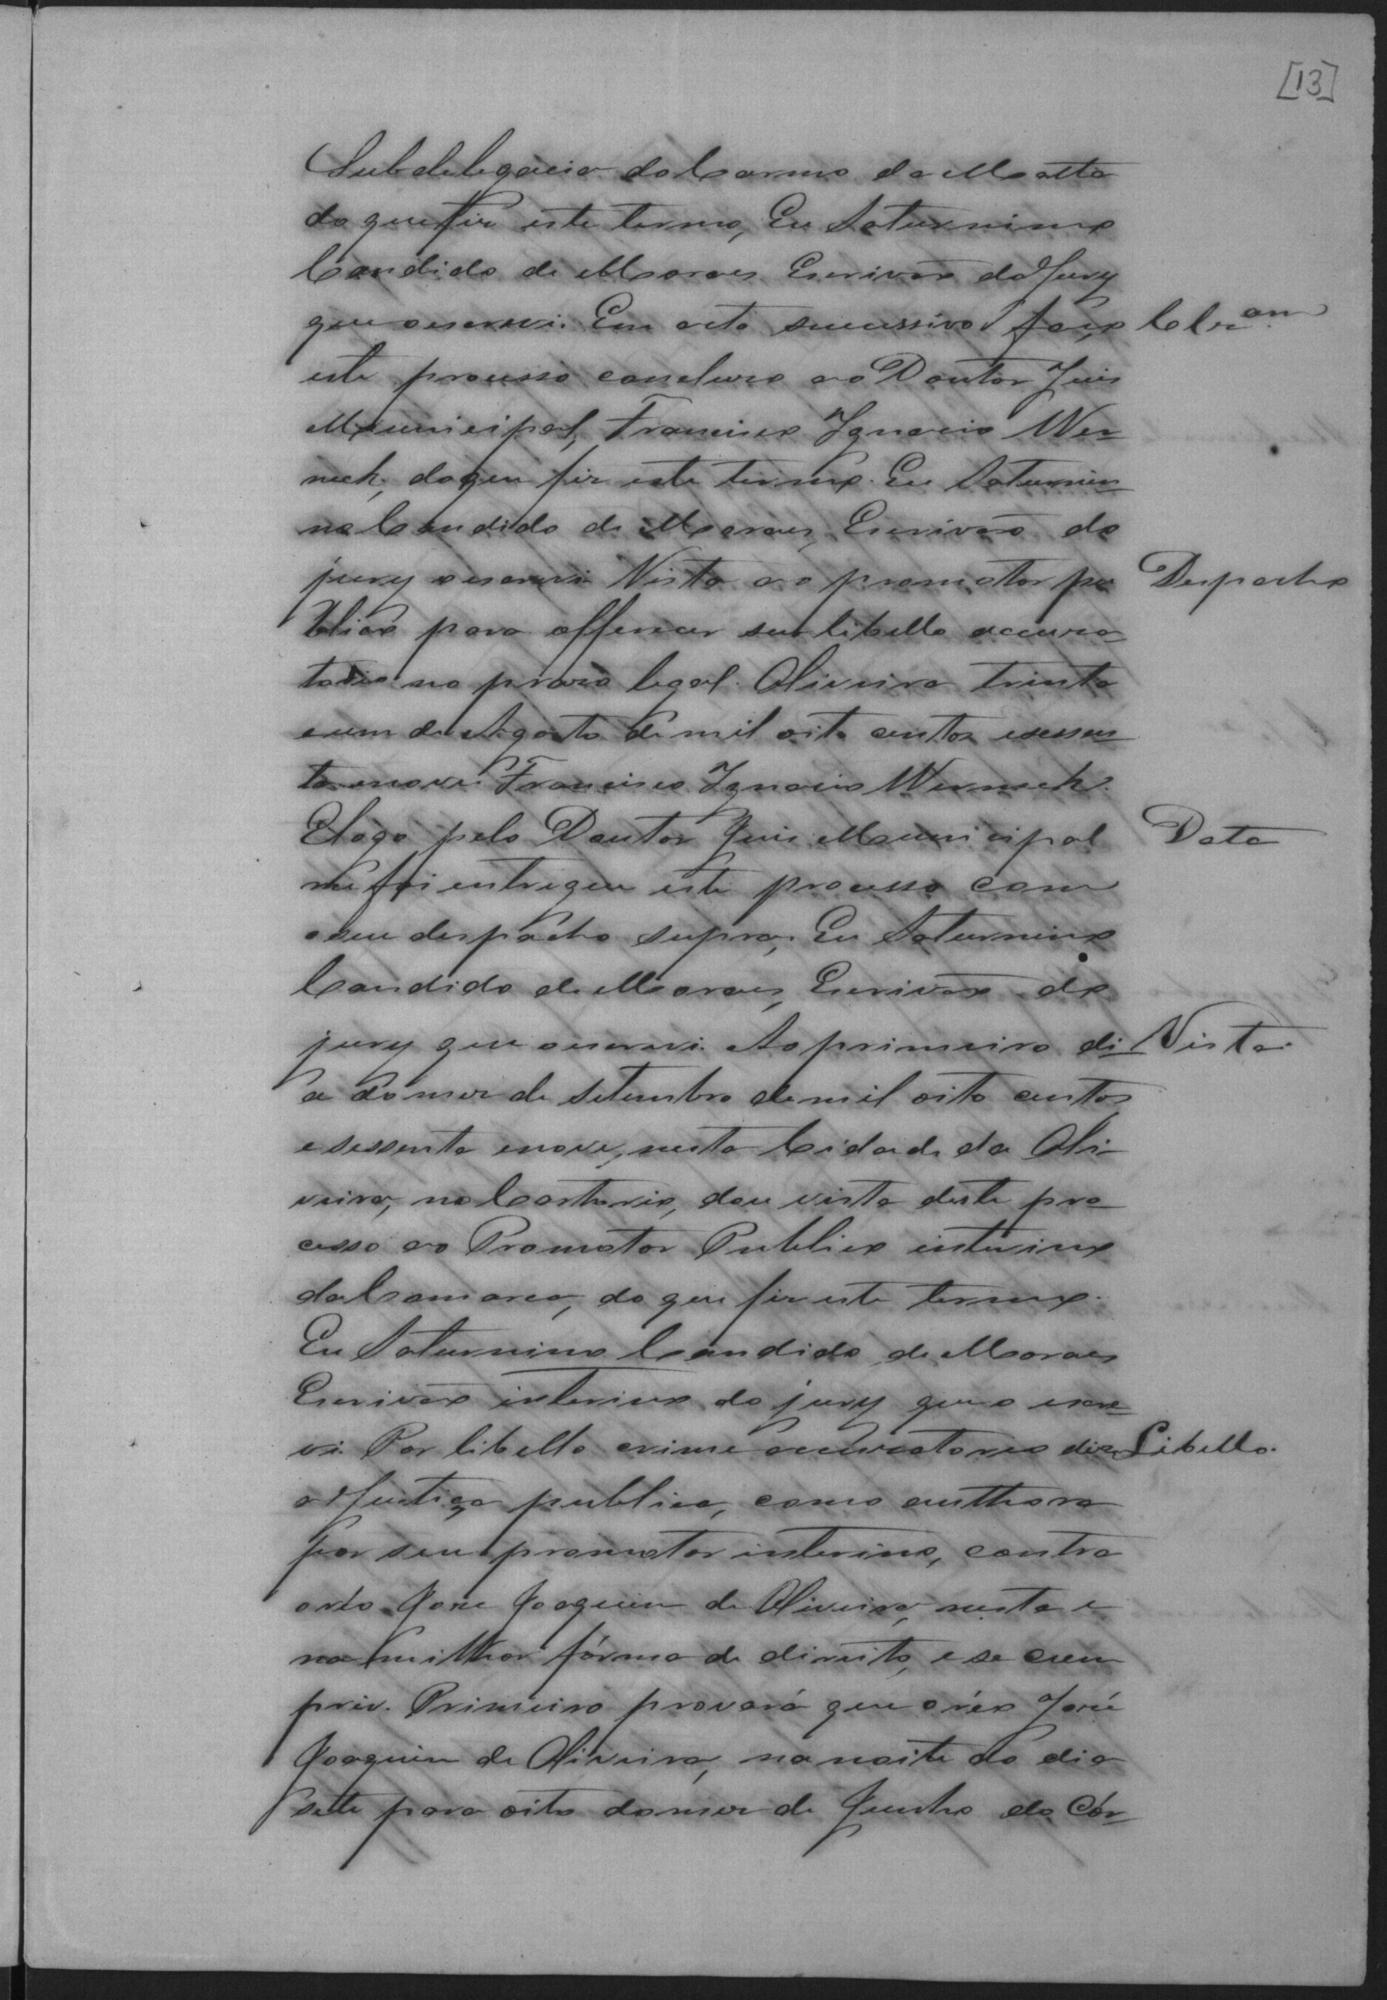 [13]
Subdelegacia do Carmo da Matta
do que fiz este termo, Eu Saturnino
Candido de Moraes Escrivão do Jury
que o escrevi. Em acto sucessivo faço Clzam
este processo concluso ao Doutor Juis
Municipal, Francisco Ignacio Wer-
neck, do que fiz este termo. Eu Saturnin-
no Candido de Moraes, Escrivão do
jury o escrevi Vista ao promotor pu Despacho
blico para offerecer seu libello accusa-
torio no praso legal. Oliveira trinta
e um de Agosto de mil oito centos e sessen-
ta e nove Francisco Ignacio Werneck.
E logo pelo Doutor Juis Municipal Data
me foi entregue este processo com
o seu despacho supra, Eu Saturnino
Candido de Moraes, Escrivão do
jury que o escrevi. Ao primeiro di- Vista.
a do mez de Setembro de mil oito centos
e sessenta e nove, nesta Cidade da Oli-
veira, no Cartorio, dou vista deste pro-
cesso ao Promotor Publico interino
da Comarca, do que fiz este termo.
Eu Saturnino Candido de Moraes
Escrivão interino do jury que o escre-
vi Por libello crime accusatorio diz Libello.
a Justiça publica, como authora
por seu promotor interino, contra
o réo Jose Joaquim de Oliveira, nesta e
na milhor fórma de direito, e se cum
priz. Primeiro provará que o réo José
Joaquim de Oliveira, na noite do dia
sete para oito do mez de Junho do Cór-